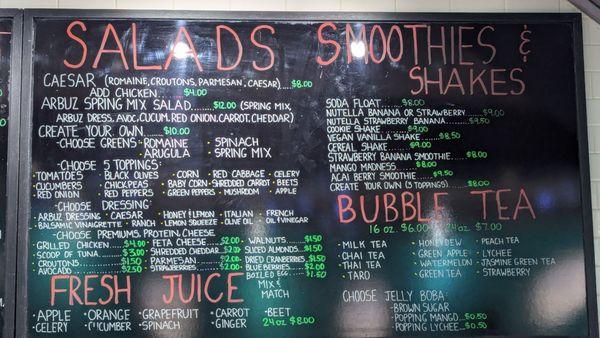 SALADS
CAESAR (ROMAINE, CROUTONS, PARMESAN, CAESAR)......$8.00
ADD CHICKEN. $4.00
ARBUZ SPRING MIX SALAD......$12.00 (SPRING MIX,
ARBUZ DRESS, AVOC, CUCUM, RED ONION, CARROT, CHEDDAR)
CREATE YOUR OWN......$10.00
-CHOOSE GREENS: •ROMAINE •SPINACH
•ARUGULA •SPRING MIX
-CHOOSE 5 TOPPINGS:
•TOMATOES •BLACK OLIVES •CORN •RED CABBAGE •CELERY
•CUCUMBERS •CHICKPEAS •BABY CORN •SHREDDED CARROT •BEETS
•RED ONION •RED PEPPERS •GREEN PEPPERS •MUSHROOM •APPLE
-CHOOSE DRESSING:
•ARBUZ DRESSING •CAESAR •HONEY & LEMON •ITALIAN •FRENCH
•BALSAMIC VINAIGRETTE •RANCH •LEMON SQUEEZE •OLIVE OIL •OIL & VINEGAR
-CHOOSE PREMIUMS, PROTEIN, CHEESE
GRILLED CHICKEN......$4.00 FETA CHEESE......$2.00 •WALNUTS......$1.50
SCOOP OF TUNA......$3.00 SHREDDED CHEDDAR...$2.00 SLICED ALMONDS...$1.50
CROUTONS......$1.50 PARMESAN......$2.00 DRIED CRANBERRIES...$1.50
AVOCADO......$2.50 STRAWBERRIES......$2.00 BLUEBERRIES......$2.00
BOILED EGG......$1.50
FRESH JUICE
MIX &
MATCH
•APPLE •ORANGE •GRAPEFRUIT •CARROT •BEET
•CELERY •CUCUMBER •SPINACH •GINGER 24oz $8.00
SMOOTHIES &
SHAKES
SODA FLOAT......$8.00
NUTELLA BANANA OR STRAWBERRY......$9.00
NUTELLA STRAWBERRY BANANA......$9.50
COOKIE SHAKE......$9.00
VEGAN VANILLA SHAKE......$8.50
CEREAL SHAKE......$9.00
STRAWBERRY BANANA SMOOTHIE......$8.00
MANGO MADNESS......$8.00
ACAI BERRY SMOOTHIE......$9.50
CREATE YOUR OWN (3 TOPPINGS)......$8.00
BUBBLE TEA
16 oz $6.00 24oz $7.00
•MILK TEA •HONEYDEW •PEACH TEA
•CHAI TEA •GREEN APPLE •LYCHEE
•THAI TEA •WATERMELON •JASMINE GREEN TEA
•TARO •GREEN TEA •STRAWBERRY
CHOOSE JELLY BOBA:
-BROWN SUGAR
-POPPING MANGO......$0.50
-POPPING LYCHEE......$0.50